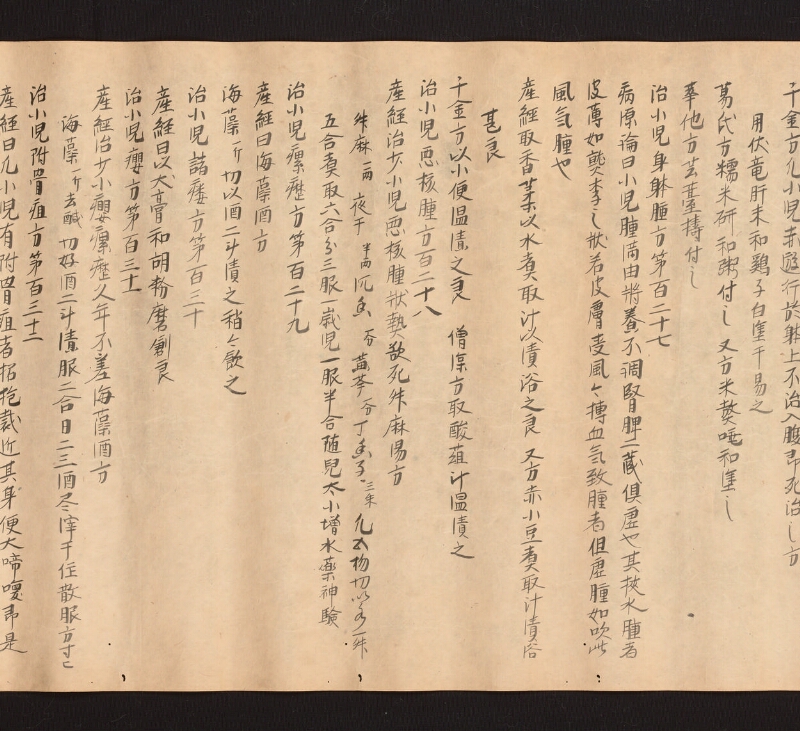 千金方凡小児赤遊行於躰上不治入腹即死治之方
用伏竜肝末和鷄子白塗干易之
葛氏方糯米研和粥付之 又方米麩唾和塗之
華他方芸薹擣付之
治小児身躰腫方第百二十七
病源論曰小児腫満由将養不調腎脾二蔵俱虚也其挾水腫者
皮薄如熟李之状若皮膚受風々搏血気致腫者但虚腫如吹此
風気腫也
産経取香葇以水煮取汁以漬浴之良 又方赤小豆煮取汁漬浴
甚良
千金方以小便温漬之良 僧深方取酸 汁温漬之
治小児悪核腫方百二十八
産経治少小児悪核腫状熱欲死舛麻湯方
舛麻一両 夜干半両 沉香一分 黄芩一分 丁子三朱 凡五物切以水一舛
五合煮取六合分三服一歳児一服半合随児大小増水藥神驗
治小児瘰癧方第百二十九
産経曰海藻酒方
海藻一斤切以酒二斗漬之稍々飲之
治小児諸瘻方第百三十
産経曰以犬膏和胡粉磨創良
治小児癭方第百三十一
産経治少小癭瘰癧久年不差海藻酒方
海藻一斤去鹹切好酒二斗漬服二合日二三酒尽滓干任散服方寸匕
治小児附骨疽方第百三十二
産経曰凡小児有附骨疽者招抱裁近其身便大啼喚即是